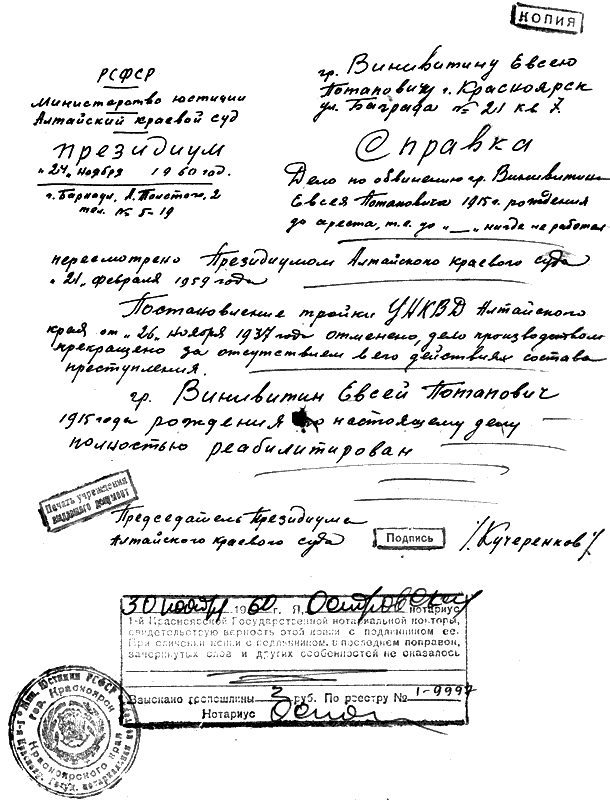 КОПИЯ
РСФСР
Министерство юстиции
Алтайский краевой суд
Президиум
"24" ноября 1960 год.
г. Барнаул, Л. Толстого, 2
тел. № 5-19
гр. Винивитину Евсею
Потаповичу г. Красноярск
ул. Баграда № 21 кв 7.
Справка
Дело по обвинению гр. Винивитин
Евсея Потаповича 1915 г. рождения
до ареста, т.е. до "—" нигде не работал
пересмотрено Президиумом Алтайского краевого суда
"21" февраля 1959 года
Постановление тройки УНКВД Алтайского
края от "26" ноября 1937 года отменено, дело производством
прекращено за отсутствием в его действиях состава
преступления.
гр. Винивитин Евсей Потапович
1915 года рождения по настоящему делу
полностью реабилитирован
Печать учреждения
выдавшего документ
Председатель Президиума
Алтайского краевого суда
Подпись
/Кучеренков/
30 ноября 1960 г. Я, нотариус
1-й Красноярской Государственной нотариальной конторы,
свидетельствую верность этой копии с подлинником ее.
При сличении копии с подлинником, в последнем поправок,
зачеркнутых слов и других особенностей не оказалось
Взыскано госпошлины 2 руб. По реестру № 1-9997
Нотариус
Юстиции РСФСР
гор. Красноярск
Красноярского края